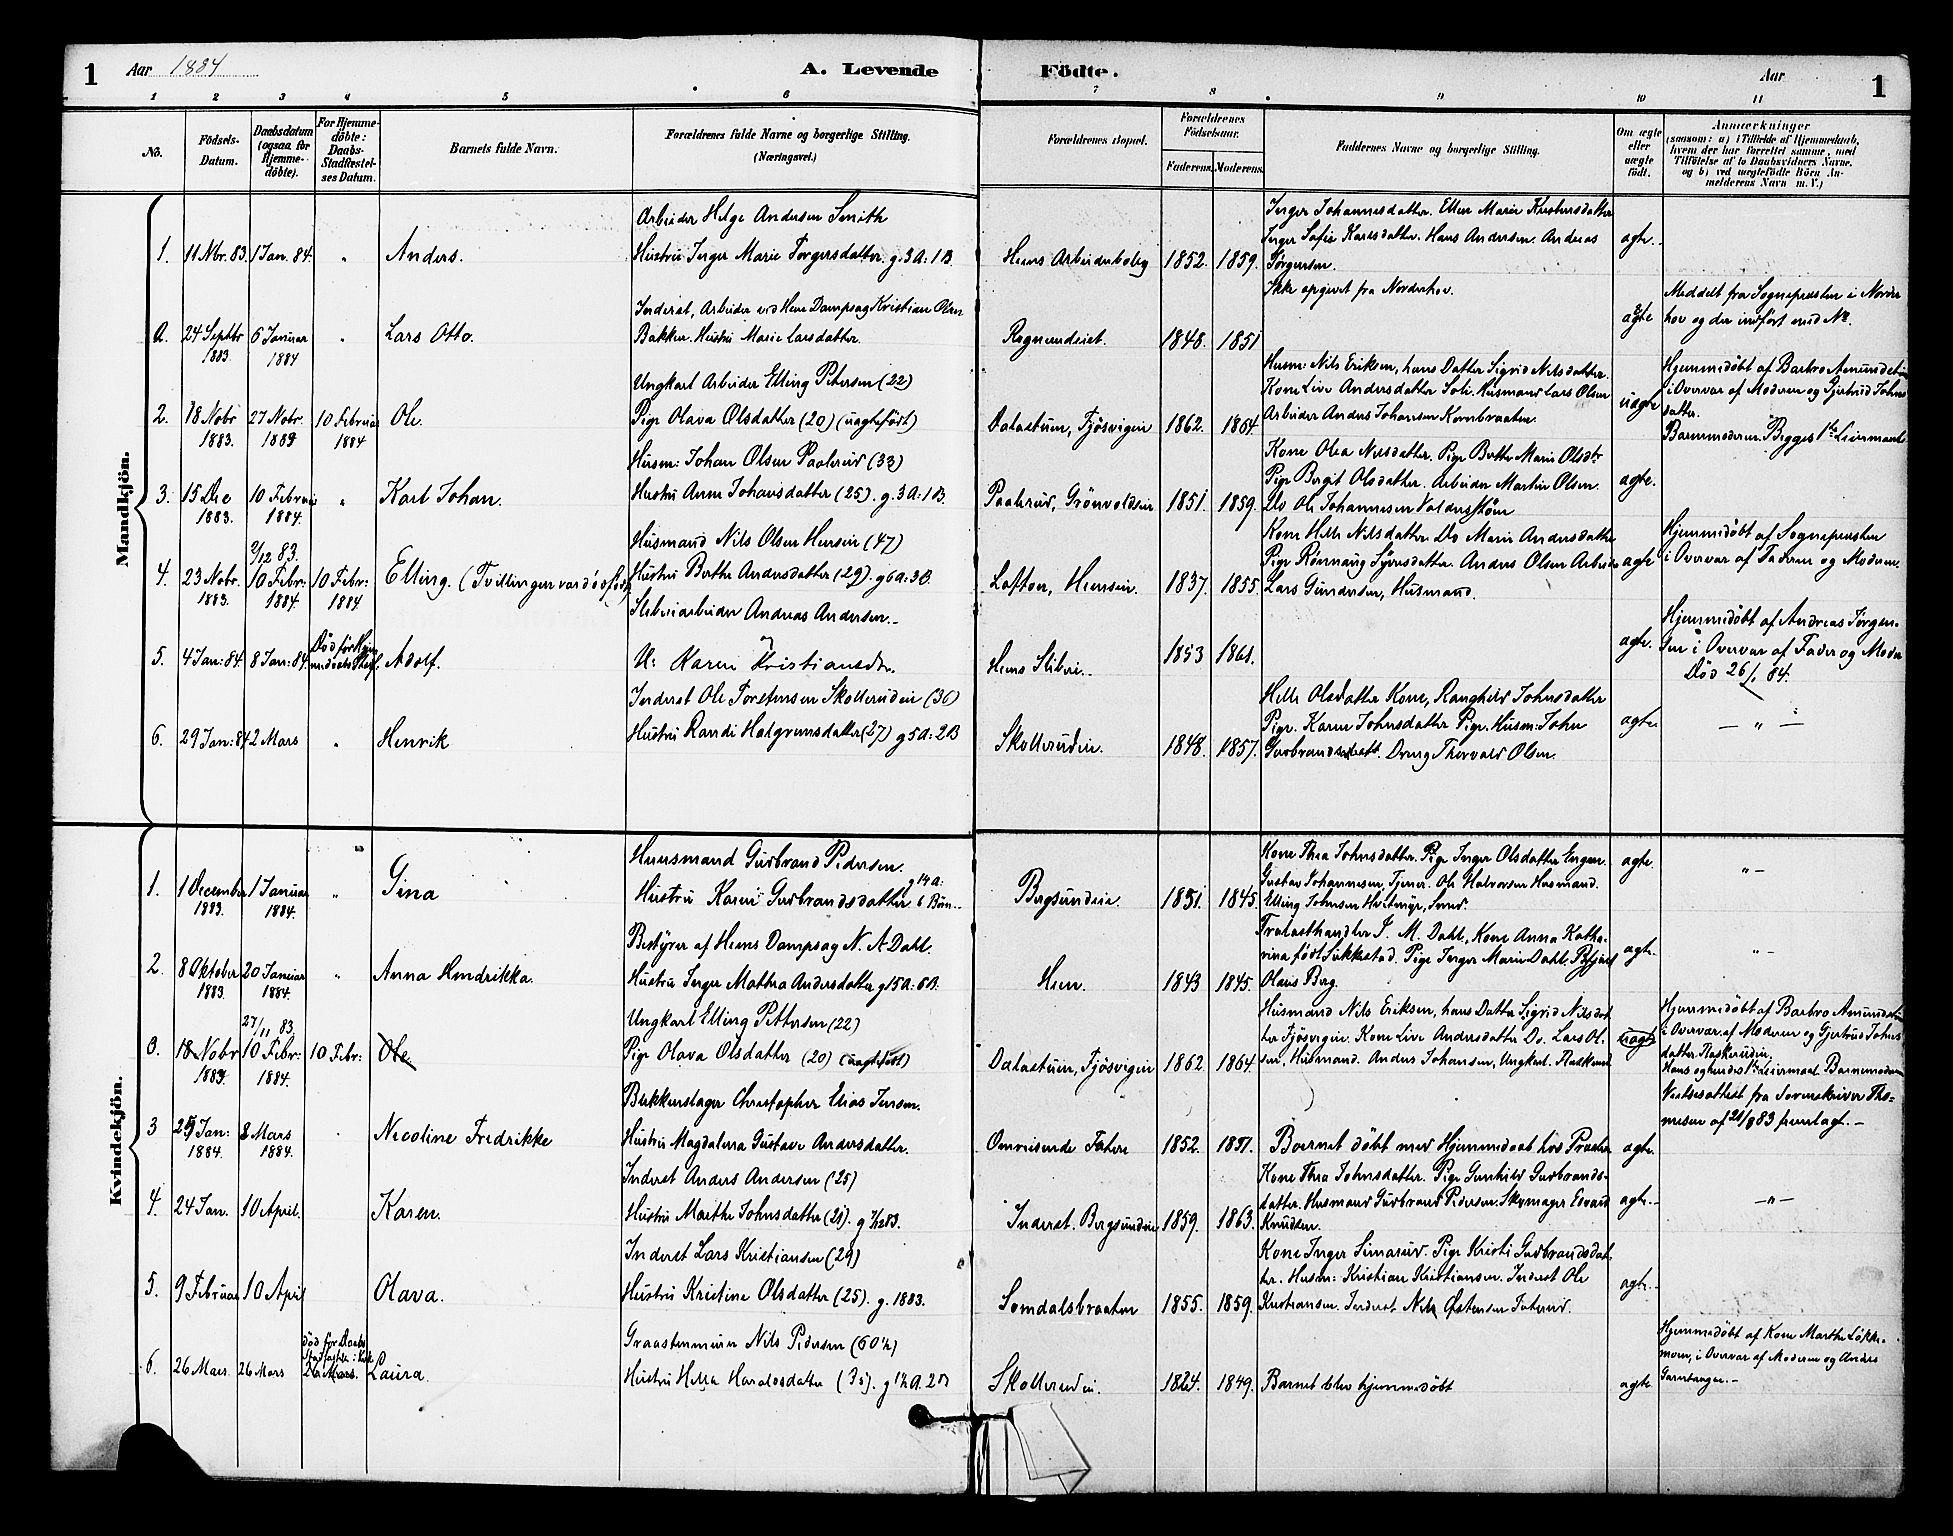 1
Aar 1884
A. Levende
Födte.
Aar
1
1 2 3 4 5 6 7 8 9 10 11
No.
Födsels-
Datum.
Daabsdatum
(ogsaa for
Hjemme-
döbte).
For Hjemme-
döbte:
Daabs-
Stadfæstel-
ses Datum.
Barnets fulde Navn.
Forældrenes fulde Navne og borgerlige Stilling.
(Næringsvei.)
Forældrenes Bopæl.
Forældrenes
Födselsaar.
Faderens.
Moderens.
Faddernes Navne og borgerlige Stilling.
Om ægte
eller
uægte
födt.
Anmærkninger
(saasom: a) i Tilfælde af Hjemmedaab,
hvem der har forrettet samme, med
Tilföielse af to Daabsvidners Navne.
og b) ved uægtefödte Börn An-
melderens Navn m. V.)
Mandkjön.
1. 11 Nbr. 83. 1 Jan. 84. " Anders.
Arbeider Helge Andersen Smith
Hustru Inger Marie Torgersdatter. g. 3 A: 1 B.
Hens Arbeiderbolig 1852. 1859.
Inger Johannesdatter. Ellen Marie
Inger Sofie Karlsdatter. Hans Andersen. Andreas
Jörgensen.
ægte.
a. 24 Septbr 6 Januar " Lars Otto.
1883 1884
Inderst, Arbeider ved Hens Dampsag Kristian Olsen
Bakken. Hustru Marie Larsdatter.
1848. 1851
Ikke opgivet fra Norderhov.
ægte
Meddelt fra Sognepresten i Norder
hov og der indfört med No.
2. 18 Nobr 27 Nobr. 10 Februar Ole.
1883. 1883 1884
Ungkarl Arbeider Elling Petersen (22)
Pige Olava Olsdatter (20) (uægtefödt)
Dalastuen, Tjösvigeie 1862. 1864.
Husm: Nils Eriksen, hans Datter Sigrid Nilsdatter.
Kone Live Andersdatter Husmand Lars Olsen
Arbeider Anders Johansen
uægte
Hjemmedöbt af Barbro Amundsdatter
i Overvær af Moderen og Gjertrud Johns
datter.
Barnemoderen. Begges 1ste Leiermaal.
3. 15 Dec 10 Februar " Karl Johan.
1883. 1884.
Husm: Johan Olsen Paalerud (33)
Hustru Anne Johansdatter (25). g. 3 A: 1 B.
Paalerud, 1851. 1859.
Kone Olea Nilsdatter. Pige Berthe Marie Olsdtr
Pige Birgit Olsdatter. Arbeider Martin Olsen.
Do Ole Johannesen
ægte.
4. 23 Nobr. 2/12 83. 10 Febr: 10 Febr: Elling. (Tvillingen var dödfödt)
1883. 1884. 1884
Husmand Nils Olsen (47)
Hustru Berthe Andersdatter (29). g 6 A: 3 B.
Loften, 1837. 1855.
Kone Helle Nilsdatter. Do Marie Andersdatter
Pige Rönnaug Anders Olsen Arbeider
Lars Gundersen, Husmand.
ægte
Hjemmedöbt af Sognepresten
i Overvær af Faderen og Moderen.
5. 4 Jan: 84. 8 Jan: 84. Död för Adolf.
Sliberiarbeider Andreas Andersen.-
H: Karen Kristiansdtr.
Hens Sliberi.- 1853 1861.
ægte.
Hjemmedöbt af Andreas Jörgen-
sen i Overvær af Fader og Moder
Död 26/1 84.
6. 29 Jan: 84 2 Mars " Henrik
Inderst Ole Torstensen Skollerudeie (36)
Hustru Randi Halgrimsdatter (27) g 5 A: 2 B
Skollerudeie. 1848. 1857.
Helle Olsdatter Kone, Ranghild Johnsdatter
Pige. Karen Johnsdatter Pige. Husm: John
Gulbrandsen. Dreng Thorvald Olsen.
ægte
— " —
Kvindekjön.
1. 1 December 1 Januar " Gina
1883. 1884.
Huusmand Gulbrand Pedersen.
Hustru Karen Gulbrandsdatter g 14 A: 6 Börn.-
Bergsundeie. 1851. 1845.
Kone Thea Johnsdatter. Pige Inger Olsdatter Engen.
Gustav Johannesen, Tjener. Ole Halvorsen Husmand.
Elling Johnsen Smed.
ægte
" -
2. 8 Oktober 20 Januar " Anna Hendrikka.
1883. 1884.
Bestyrer af Hens Dampsag N. A Dahl.
Hustru Inger Mathea Andersdatter g 15 A: 6 B.
Hen. 1843 1845.
Trælasthandler J. M. Dahl, Kone Anna Katha-
rina födt Pige Inger Marie Dahl.
Olaus Berg.
ægte.
" -
3. 18 Nobr 27/11 83. 10 Febr: 10 Febr: Ole
1883 1884.
Ungkarl Elling Pettersen (22)
Pige Olava Olsdatter (20) (uægtefödt)
Dalastuen, Tjösvigeie 1862 1864.
Husmand Nils Eriksen, hans Datter Sigrid Nilsdat
ter Tjösvigeie. Kone Live Andersdatter Do. Lars Ol-
sen, Husmand. Anders Johansen, Ungkarl.
uægte
Hjemmedöbt af Barbro Amundsdatter
i Overvær af Moderen og Gjertrud Johns
datter Flaskerudeie.
Hans og hendes 1ste Leiermaal. Barnemoderen
3 25 Jan: 8 Mars Nicoline Fredrikke
1884. 1884.
Blikkenslager Christopher Elias Jensen.
Hustru Magdalena Gustave Andersdatter.
Omreisende Fatere 1852. 1851.
Barnet döbt med Hjemmedaab hos
ægte.
Vielsesattest fra Sorenskriver Tho-
mesen af 21/9 83 fremlagt.-
4. 24 Jan. 10 April. Karen.
Inderst Anders Andersen (25)
Hustru Marthe Johnsdatter (21).
Inderst. Bergsundeie 1859. 1863.
Kone Thea Johnsdatter. Pige Gunhild Gulbrands-
datter. Husmand Gulbrand Pedersen. Skomager Edvard
Knudsen.
ægte.-
— " —
5. 9 Februar 10 April Olava.
Inderst Lars Kristiansen (29)
Hustru Kristine Olsdatter (25). g. 1883.
Somdalsbraaten 1855. 1859.
Kone Inger Simarud. Pige Kristi Gulbrandsdat-
ter. Husm: Kristian Kristiansen. Inderst Ole
Kristiansen. Inderst Nils Östensen
ægte.-
6. 26 Mars. 26 Mars död för Daabs 26 Mars. Laura.
Graastensmurer Nils Pedersen (60½)
Hustru Helga Haraldsdatter (35). g 1½ A. 2 B
Skollerudeie. 1824. 1849.
Barnet blev hjemmedöbt
ægte
Hjemmedöbt af Kone Marthe Lökke-
moen, i Overvær af Moderen og Andrs